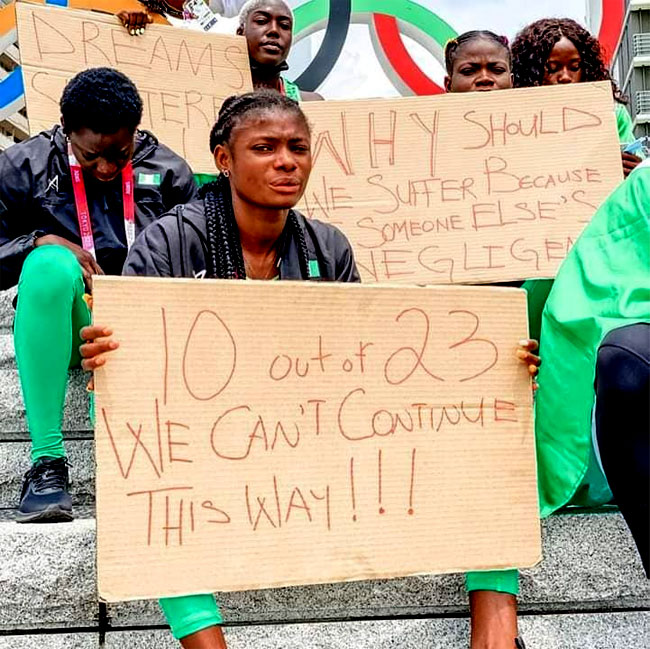 DREAMS
WHY SHOULD
WE SUFFER BECAUSE
SOMEONE ELSE'S
10 out of 23
WE CAN'T CONTINUE
THIS WAY!!!